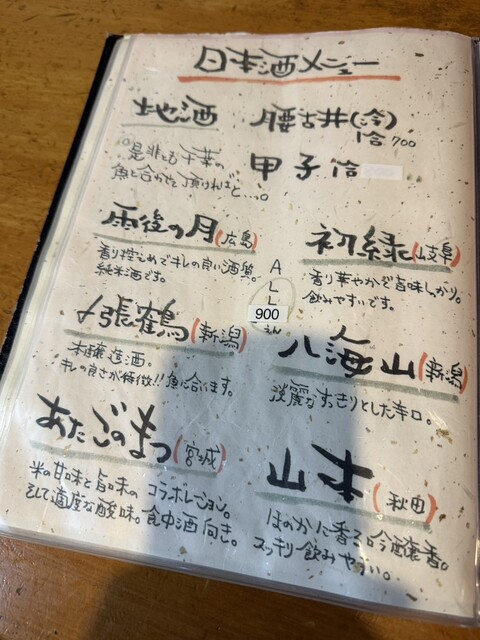 日本酒メニュー
地酒
腰古井(冷)
1合 700
是非とも千葉の
魚と合わせて頂ければと…。
甲子 1合
雨後の月(広島)
香り控えめでキレの良い酒質。
純米酒です。
初緑(岐阜)
香り華やかで旨味しっかり。
飲みやすいです。
ALL
900
えん
〆張鶴(新潟)
本醸造酒。
キレの良さが特徴!!魚に合います。
八海山(新潟)
淡麗なすっきりとした辛口。
あたごのまつ(宮城)
米の甘味と旨味のコラボレーション。
そして適度な酸味。食中酒向き。
山本(秋田)
ほのかに香る吟醸香。
スッキリ飲みやすい。